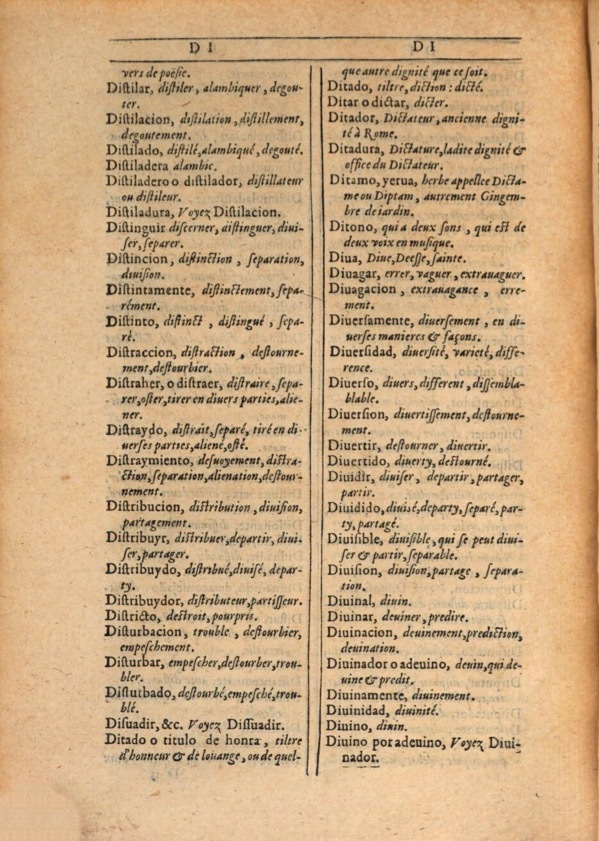 DI
DI
vers de poësie.
Distilar, distiler, alambiquer, degou-
ter.
Distilacion, distilation, distillement,
degoutement.
Distilado, distilé, alambiqué, degouté.
Distiladera alambic.
Distiladero o distilador, distillateur
ou distileur.
Distiladura, Voyez Distilacion.
Distinguir discerner, distinguer, diui-
ser, separer.
Distincion, distinction, separation,
diuision.
Distintamente, distinctement, sepa-
rément.
Distinto, distinct, distingué, sepa-
ré.
Distraccion, distraction, destourne-
ment, destourbier.
Distraher, o distraer, distraire, sepa-
rer, oster, tirer en diuers parties, alie-
ner.
Distraydo, distrait, separé, tiré en di-
uerses parties, aliené, osté.
Distraymiento, desuoyement, distra-
ction, separation, alienation, destour-
nement.
Distribucion, distribution, diuision,
partagement.
Distribuyr, distribuer, departir, diui-
ser, partager.
Distribuydo, distribué, diuisé, depar-
ty.
Distribuydor, distributeur, partisseur.
Districto, destroit, pourpris.
Disturbacion, trouble, destourbier,
empeschement.
Disturbar, empescher, destourber, trou-
bler.
Disturbado, destourbé, empesché, trou-
blé.
Disuadir, &c. Voyez Dissuadir.
Ditado o titulo de honra, tiltre
d'honneur & de louange, ou de quel-
que autre dignité que ce soit.
Ditado, tiltre, diction: dicté.
Ditar o dictar, dicter.
Ditador, Dictateur, ancienne digni-
té à Rome.
Ditadura, Dictature, ladite dignité &
office du Dictateur.
Ditamo, yerua, herbe appellee Dicta-
me ou Diptam, autrement Gingem-
bre de iardin.
Ditono, qui a deux sons, qui est de
deux voix en musique.
Diua, Diue, Deesse, sainte.
Diuagar, errer, vaguer, extrauaguer.
Diuagacion, extrauagance, erre-
ment.
Diuersamente, diuersement, en di-
uerses manieres & façons.
Diuersidad, diuersité, varieté, diffe-
rence.
Diuerso, diuers, different, dissembla-
blable.
Diuersion, diuertissement, destourne-
ment.
Diuertir, destourner, diuertir.
Diuertido, diuerty, destourné.
Diuidir, diuiser, departir, partager,
partir.
Diuidido, diuisé, departy, separé, par-
ty, partagé.
Diuisible, diuisible, qui se peut diui-
ser & partir, separable.
Diuision, diuision, partage, separa-
tion.
Diuinal, diuin.
Diuinar, deuiner, predire.
Diuinacion, deuinement, prediction,
deuination.
Diuinador o adeuino, deuin, qui de-
uine & predit.
Diuinamente, diuinement.
Diuinidad, diuinité.
Diuino, diuin.
Diuino por adeuino, Voyez Diui-
nador.